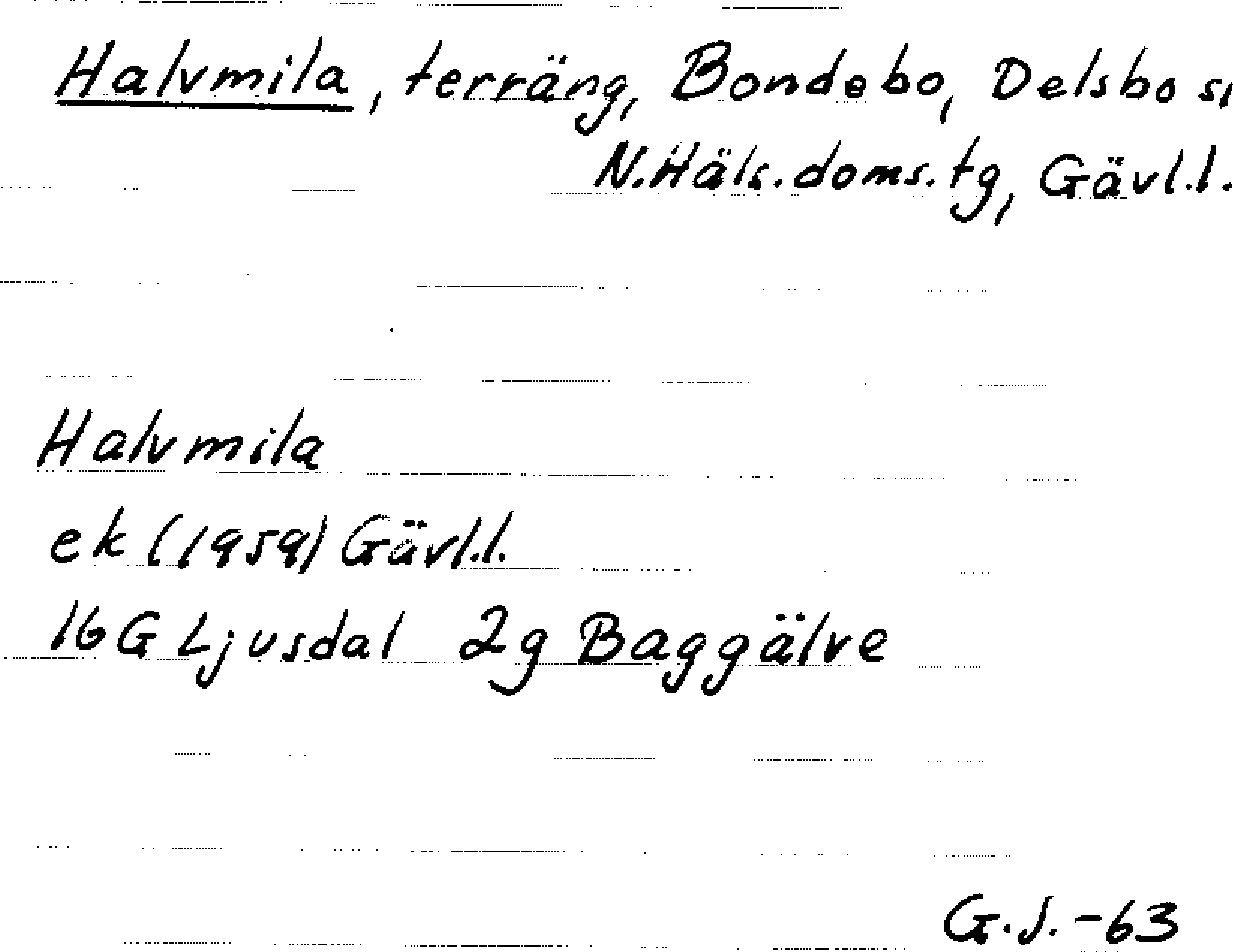 Halvmila, terräng, Bondebo, Delsbo s,
N.Häls.doms.tg, Gävl.l.
Halvmila
ek (1959) Gävl.l.
16 G Ljusdal 2g Baggälve
G.S. -63